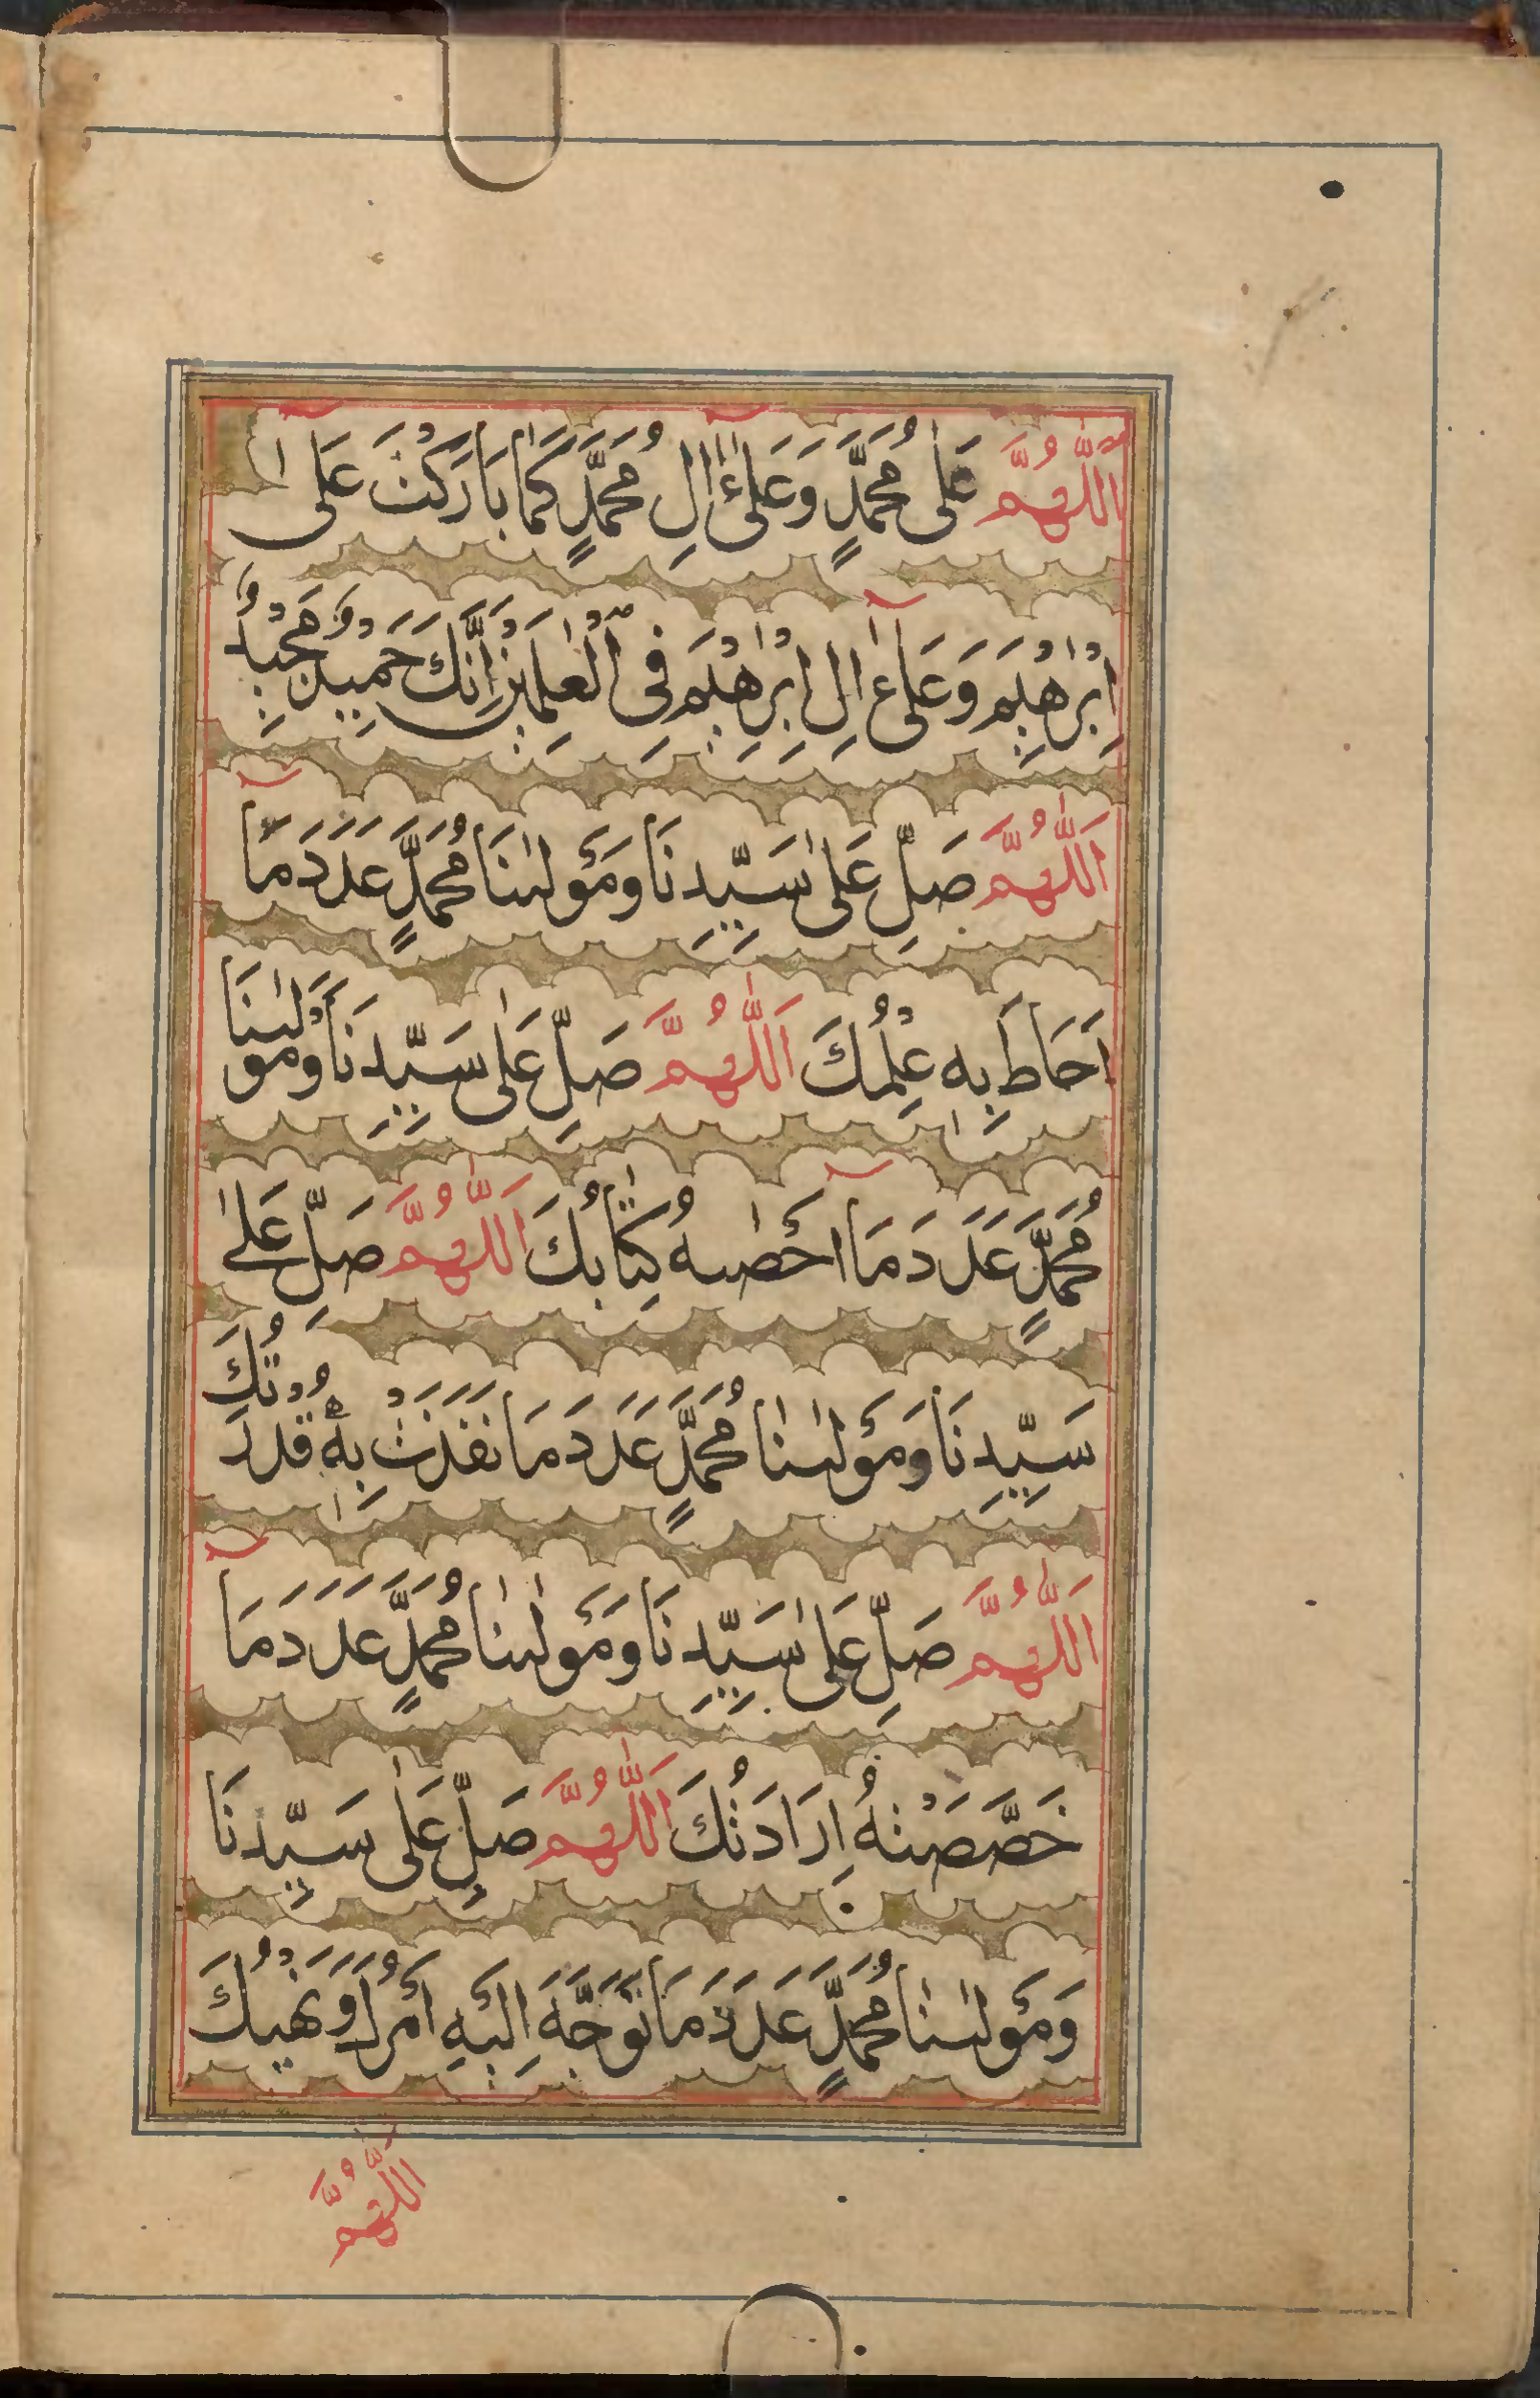 اَللّٰهُمَّ عَلٰى مُحَمَّدٍ وَعَلٰٓى اٰلِ مُحَمَّدٍ كَمَا بَارَكْتَ عَلٰٓى ا
اِبْرٰهِيْمَ وَعَلٰٓى اٰلِ اِبْرٰهِيْمَ فِى الْعٰلَمِيْنَ اِنَّكَ حَمِيْدٌ مَّجِيْدٌ
اَللّٰهُمَّ صَلِّ عَلٰى سَيِّدِنَا وَمَوْلٰىنَا مُحَمَّدٍ عَدَدَ مَآ
اَحَاطَ بِهٖ عِلْمُكَ اَللّٰهُمَّ صَلِّ عَلٰى سَيِّدِنَا وَمَوْلٰىنَا
مُحَمَّدٍ عَدَدَ مَآ اَحْصٰىهُ كِتٰابُكَ اَللّٰهُمَّ صَلِّ عَلٰى
سَيِّدِنَا وَمَوْلٰىنَا مُحَمَّدٍ عَدَدَ مَا نَفَذَتْ بِهٖ قُدْرَتُكَ
اَللّٰهُمَّ صَلِّ عَلٰى سَيِّدِنَا وَمَوْلٰىنَا مُحَمَّدٍ عَدَدَ مَا
خَصَّصَتْهُ اِرَادَتُكَ اَللّٰهُمَّ صَلِّ عَلٰى سَيِّدِنَا
وَمَوْلٰىنَا مُحَمَّدٍ عَدَدَ مَا تَوَجَّهَ اِلَيْهِ اَمْرُكَ وَنَهْيُكَ
اَللّٰهُمَّ